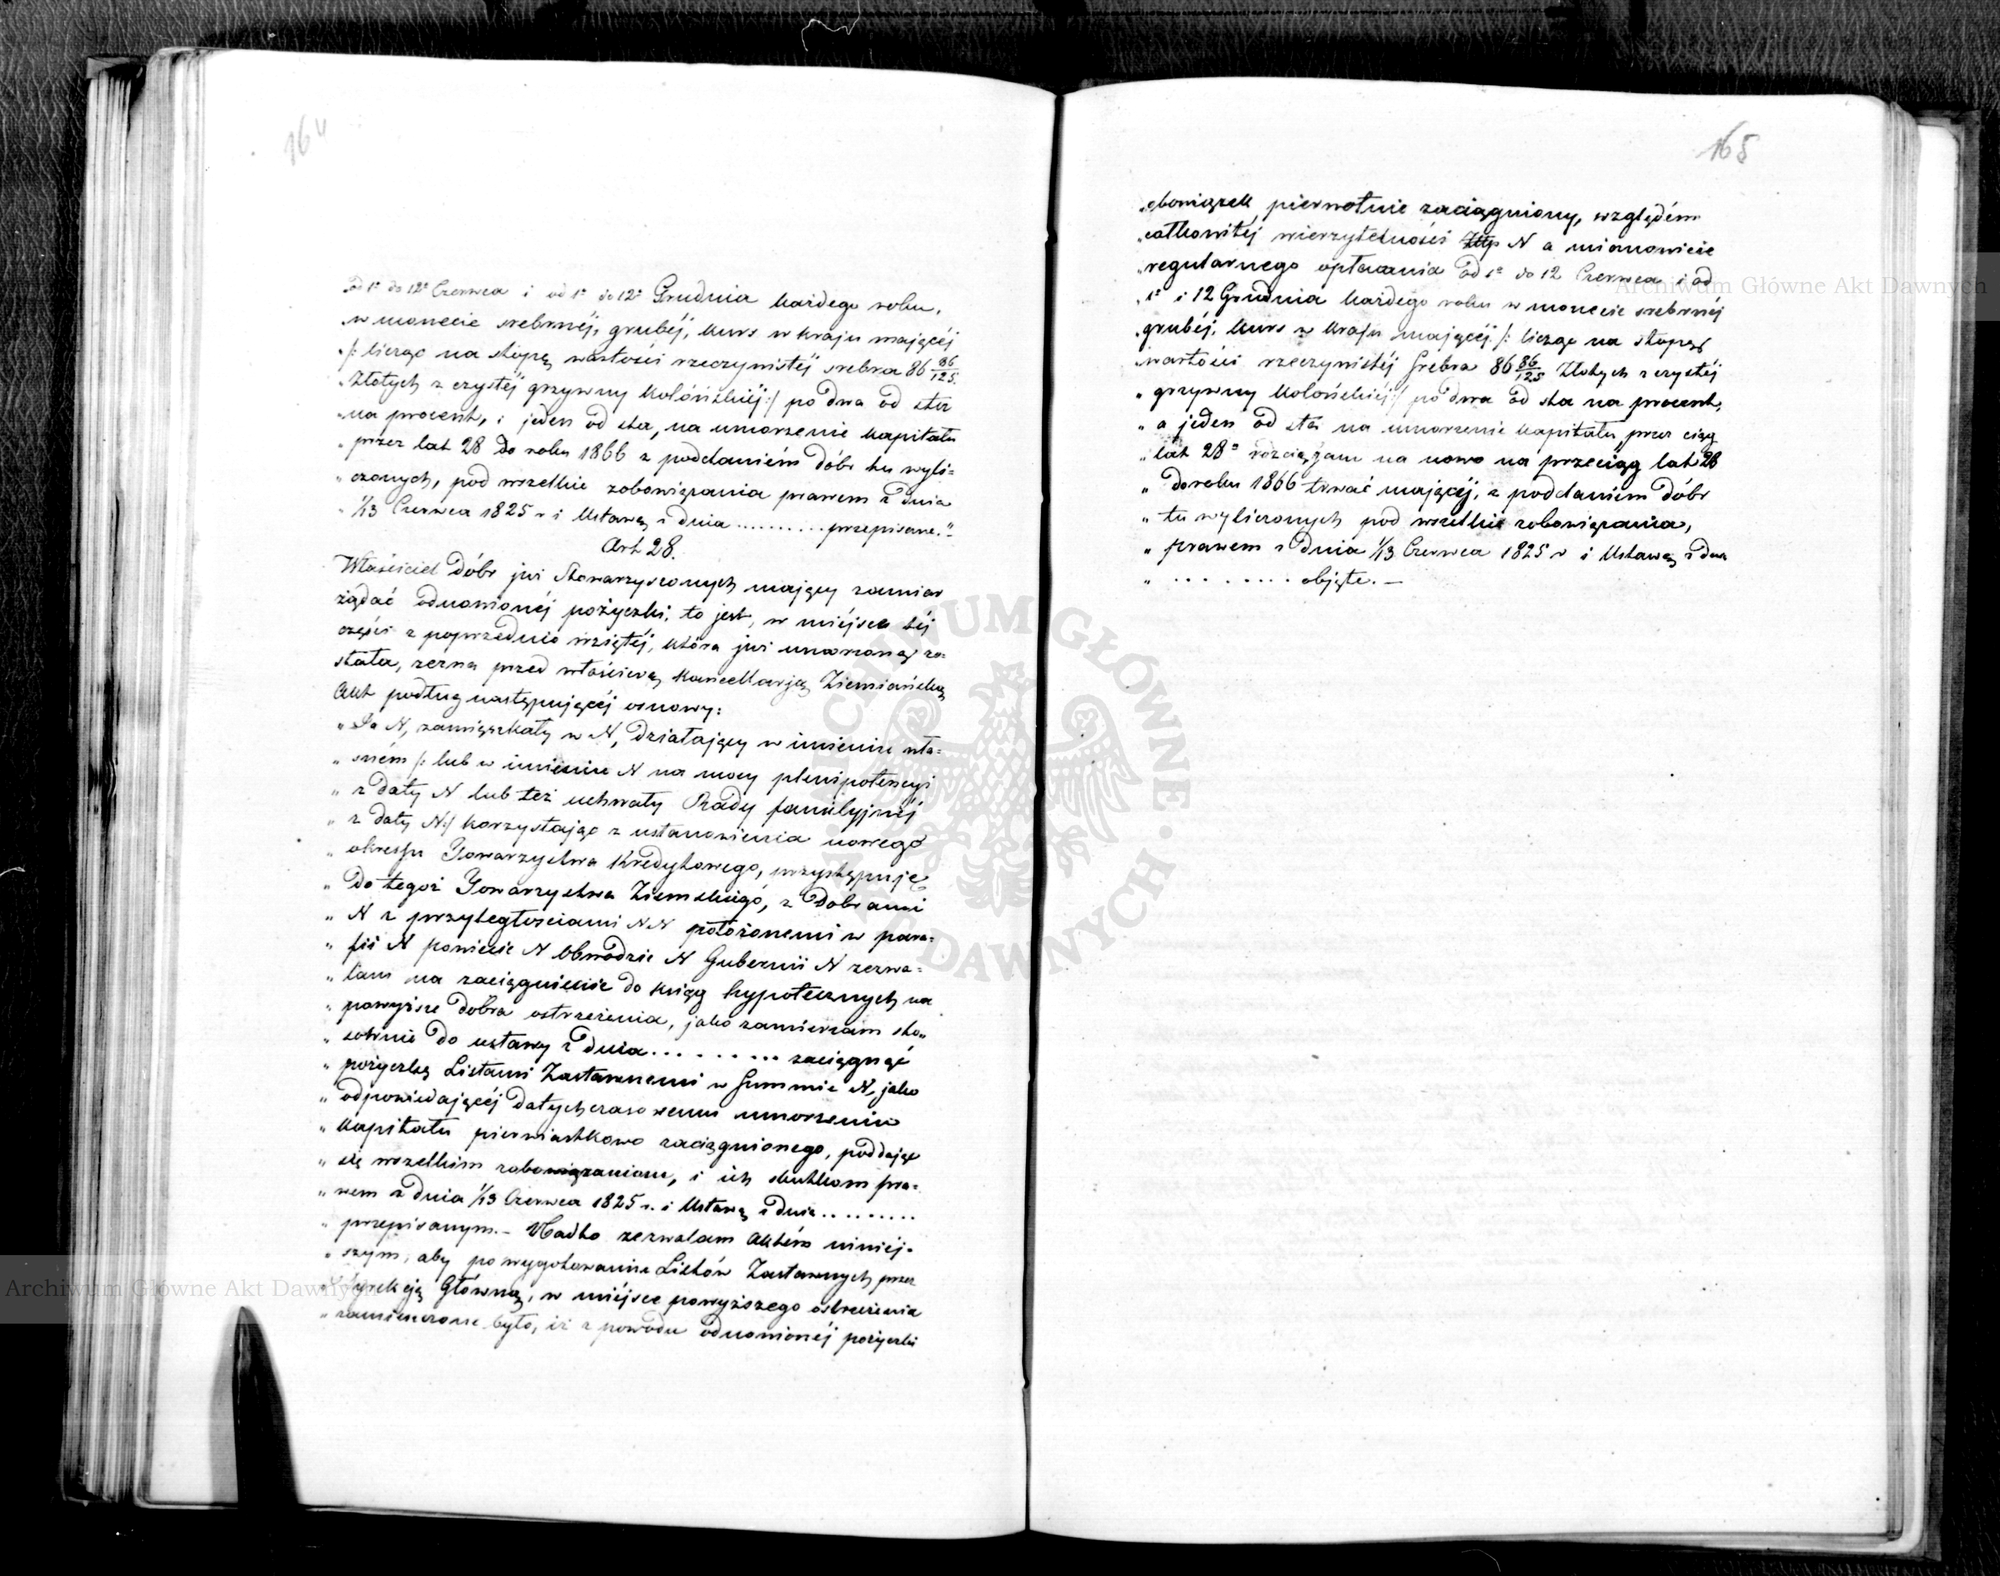 164
od 1º do 12º Czerwca i od 1º do 12º Grudnia każdego roku,
„w monecie srebrnéj, grubéj, kurs w kraju mającéj
„/: licząc na stopę wartości rzeczywistéj srebra 86 86/125
„Złotych z czystéj grzywny kolońskiéj :/ po dwa od sta
„na procent, i jeden od sta, na umorzenie kapitału
„przez lat 28 do roku 1866 z poddaniém dóbr tu wyli=
„czonych, pod wszelkie zobowiązania prawem z dnia
„1/13 Czerwca 1825 r i Ustawą z dnia .......... przepisane."
Art 28.
Właściciel dóbr już Stowarzyszonych mający zamiar
żądać odnowionéj pożyczki, to jest, w miejsce téj
części z poprzednio wziętéj, która już umorzoną zo=
stała, zezna przed właściwą Kancellarją Ziemiańską
Akt podług następującéj osnowy:
„Ja N, zamięszkały w N, działający w imieniu wła=
„sném /: lub w imieniu N na mocy plenipotencyi
„z daty N lub też uchwały Rady familyjnéj
„z daty N:/ korzystając z ustanowienia nowego
„okressu Towarzystwa Kredytowego, przystępuję
„do tegoż Towarzystwa Ziemskiego, z Dobrami
„N z przyległościami NN położonemi w para=
„fii N powiecie N Obwodzie N Gubernii N zezwa=
„lam na zaciągnienie do ksiąg hypotecznych na
„powyższe dobra ostrzeżenia, jako zamierzam sto=
„sownie do ustawy z dnia ......... zaciągnąć
„pożyczkę Listami Zastawnemi w Summie N, jako
„odpowiadającéj dotychczasowemu umorzeniu
„kapitału pierwiastkowo zaciągnionego, poddając
„się wszelkim zobowiązaniom, i ich skutkom pra=
„wem z dnia 1/13 Czerwca 1825 r. i Ustawą z dnia .........
„przepisanym. – Nadto zezwalam Aktem niniej=
„szym, aby po wygotowaniu Listów Zastawnych przez
„Dyrekcją Główną, w miejsce powyższego ostrzeżenia
„zamieszczone było, iż z powodu odnowionéj pożyczki
165
„obowiązek pierwotnie zaciągniony, względém
„całkowitéj wierzytelności Złtp N a mianowicie
„regularnego opłacania od 1º do 12 Czerwca i od
„1º i 12 Grudnia każdego roku w monecie srebrnéj
„grubéj, kurs w kraju mającéj /: licząc na stopę
„wartości rzeczywistéj Srebra 86 86/125 Złotych z czystéj
„grzywny kolońskiéj :/ po dwa od sta na procent,
„a jeden od sta na umorzenie kapitału, przez ciąg
„lat 28º rozciągam na nowo na przeciąg lat 28
„do roku 1866 trwać mającéj, z poddaniem dóbr
„tu wyliczonych pod wszelkie zobowiązania,
„prawem z dnia 1/13 Czerwca 1825 r i Ustawą z dnia
„ ......... objęte. –
Archiwum Główne Akt Dawnych
ARCHIWUM GŁÓWNE AKT DAWNYCH
Archiwum Główne Akt Dawnych